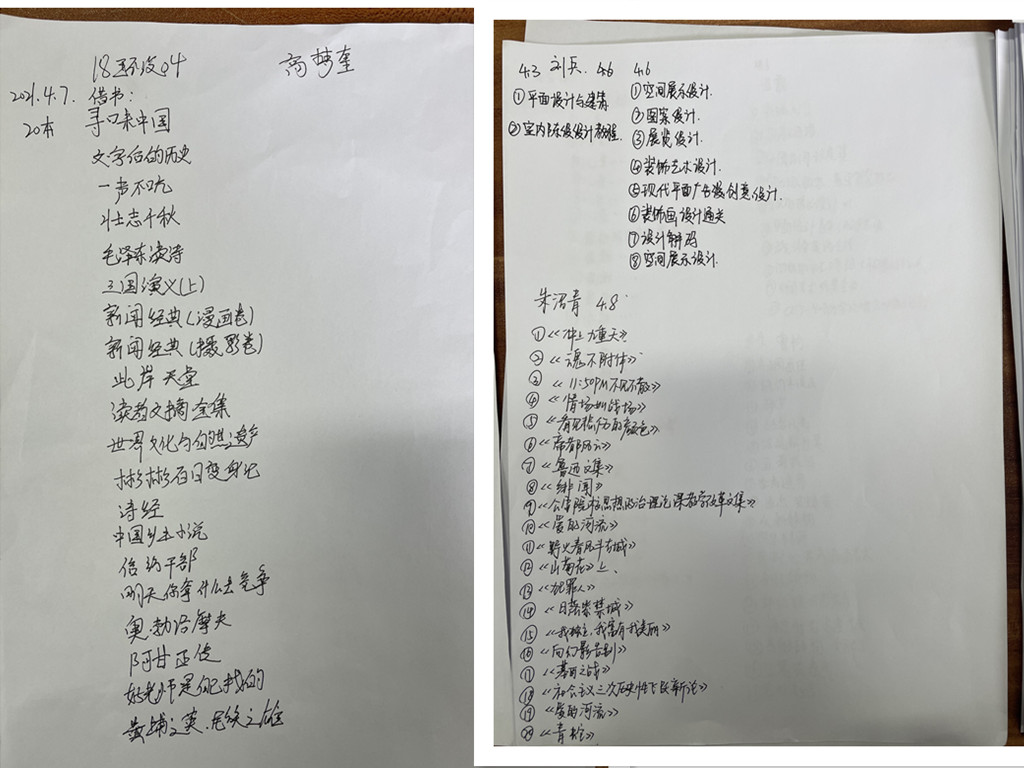 18环设04 高梦奎
2021.4.7. 借书：
20本 寻味中国
文字后的历史
一声不吭
壮志千秋
毛泽东读诗
三国演义(上)
新闻经典(漫画卷)
新闻经典(摄影卷)
此岸天堂
读者文摘全集
世界文化与自然遗产
彬彬石日变身记
诗经
中国乡土小说
信约干部
明天你拿什么去竞争
奥勃洛摩夫
阿甘正传
好老师是自己找的
黄埔之英.民族之雄
4.3 刘兵. 4.6 4.6
①平面设计与建筑
②室内陈设设计教程.
①空间展示设计.
②图案设计.
③展览设计.
④装饰艺术设计.
⑤现代平面广告创意设计.
⑥装饰画设计通关
⑦设计解码
⑧空间展示设计.
朱 青 4.8
①《冲上九重天》
②《魂不附体》
③《11:50PM不见不散》
④《情场如战场》
⑤《看见信仰的颜色》
⑥《帝都风云》
⑦《鲁迅文集》
⑧《绯闻》
⑨《 学院校思想政治理论课教学改革文集》
⑩《爱的河流》
⑪《野火春风斗古城》
⑫《山菊花》上、
⑬《犯罪人》
⑭《日落紫禁城》
⑮《我独立,我富有我美丽》
⑯《向幻影告别》
⑰《幕后之战》
⑱《社会主义三次历史性飞跃新论》
⑲《爱的河流》
⑳《青 》